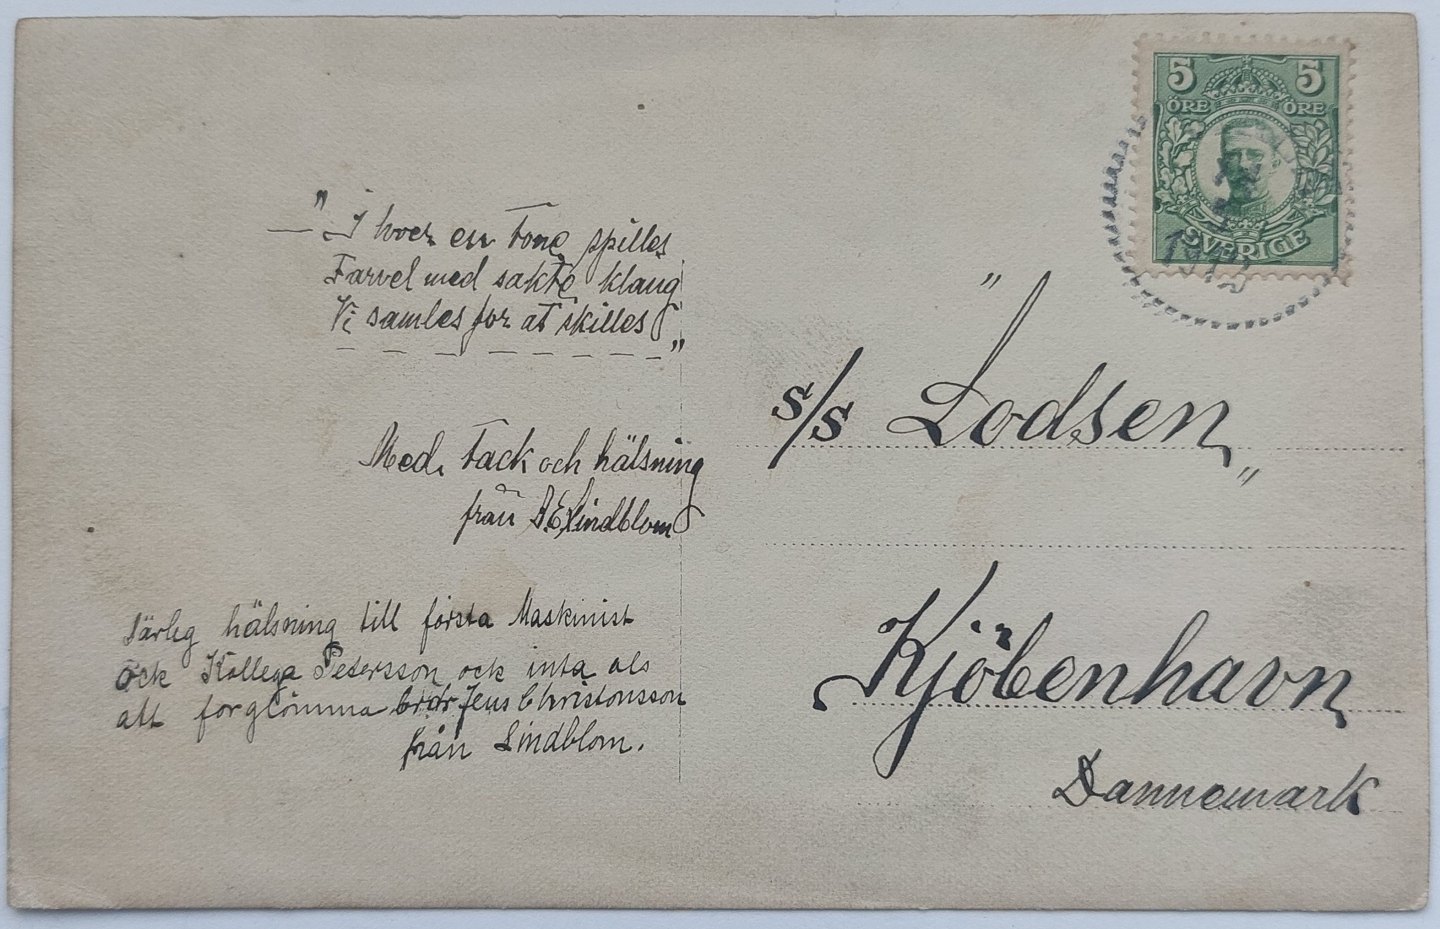 5 5
ÖRE ÖRE
SVERIGE
— " I hver en tone spilles
Farvel med sakte klang
Vi samles for at skilles
— — — — — — — — "
Med. tack och hälsning
från Lindblom
"
s/s Lodsen
"
Kjöbenhavn
Dannemark
hälsning till första Maskinist
ock Kollega Petersson ock inta als
att forglömma Jens Christonsson
från Lindblom.